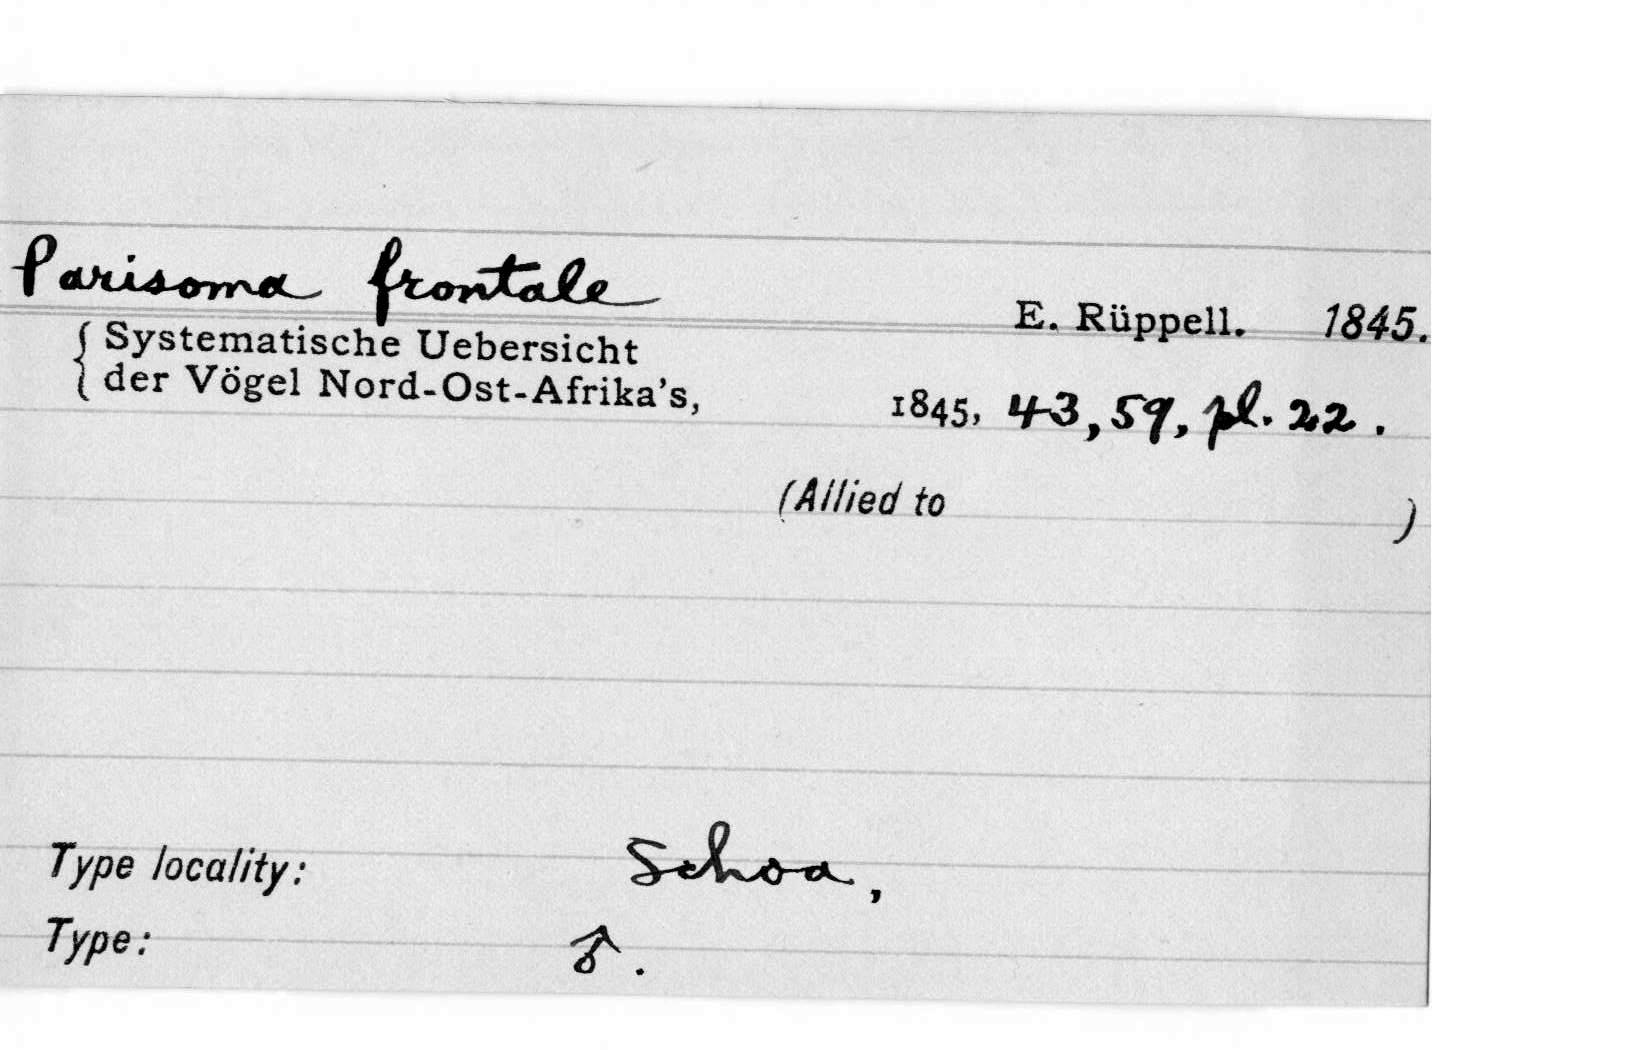 Parisoma frontale
E. Rüppell. 1845.
{ Systematische Uebersicht
{ der Vögel Nord-Ost-Afrika's,
1845, 43, 59, pl. 22.
(Allied to )
Type locality: Schoa,
Type: ♂.